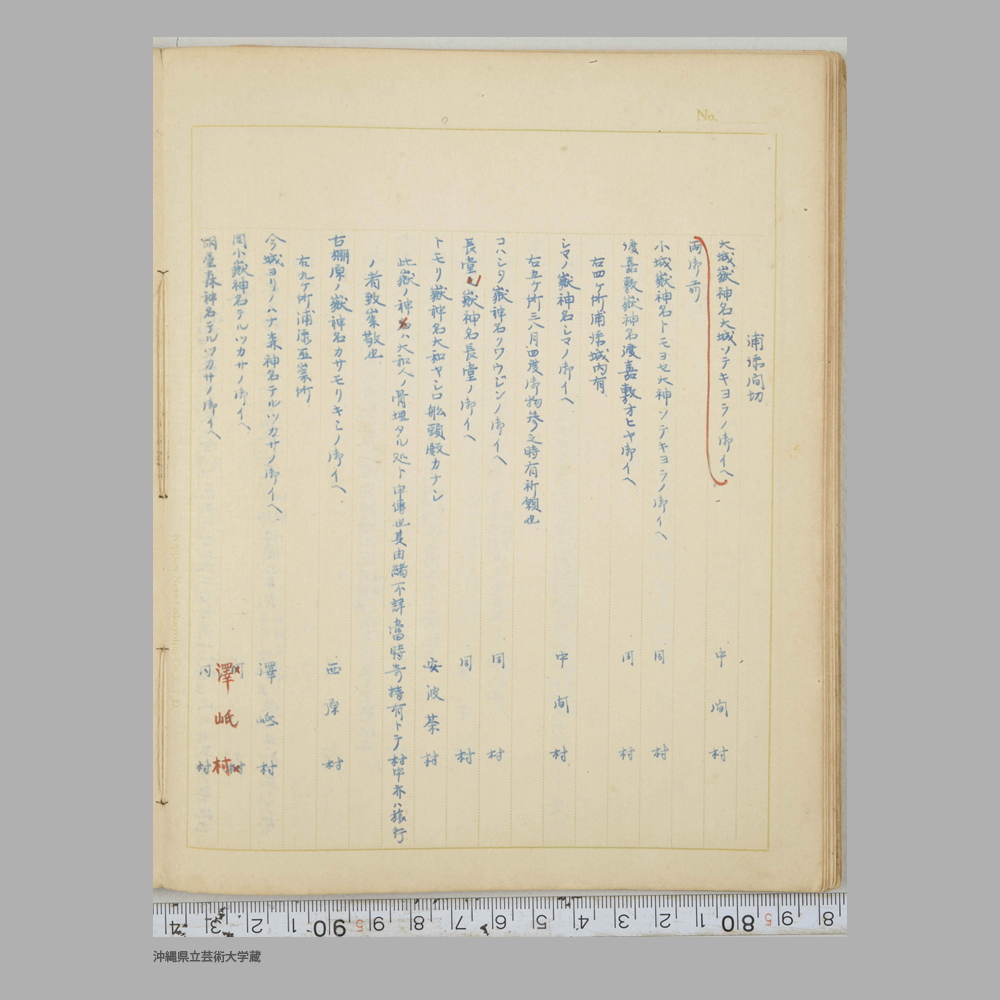 No.
浦添間切
大城嶽神名大城ソテキヨラノ御イヘ 中間村
両御前
小城嶽神名トモヨセ大神ソテキヨラノ御イヘ 同村
渡嘉敷嶽神名渡嘉敷オヒヤ御イヘ 同村
右四ケ所浦添城内有
シマノ嶽神名シマノ御イヘ 中間村
右五ケ所三八月四度御物参之時有祈願也
コバシタ嶽神名リワウジンノ御イヘ 同村
長堂ノ嶽神名長堂ノ御イヘ 同村
トモリ嶽神名大和ヤシロ船頭殿カナシ 安波茶村
此嶽ノ神名ハ大和人ノ骨埋タル処ト申傳也其由緒不詳當時寄揚有トテ村中亦ハ旅行
ノ者致崇敬也
古棚原ノ嶽神名カサモリキミノ御イヘ 西原村
右九ケ所浦添巫崇所
今城ヨリノハナ森神名テルツカサノ御イヘ 澤岻村
同小嶽神名テルツカサノ御イヘ 同村
澤岻村
神名テルツカサノ御イヘ 同村
8 9 5 80 1 2 3 4 5 6 7 8 9 5 90 1 2 3 4
沖縄県立芸術大学蔵